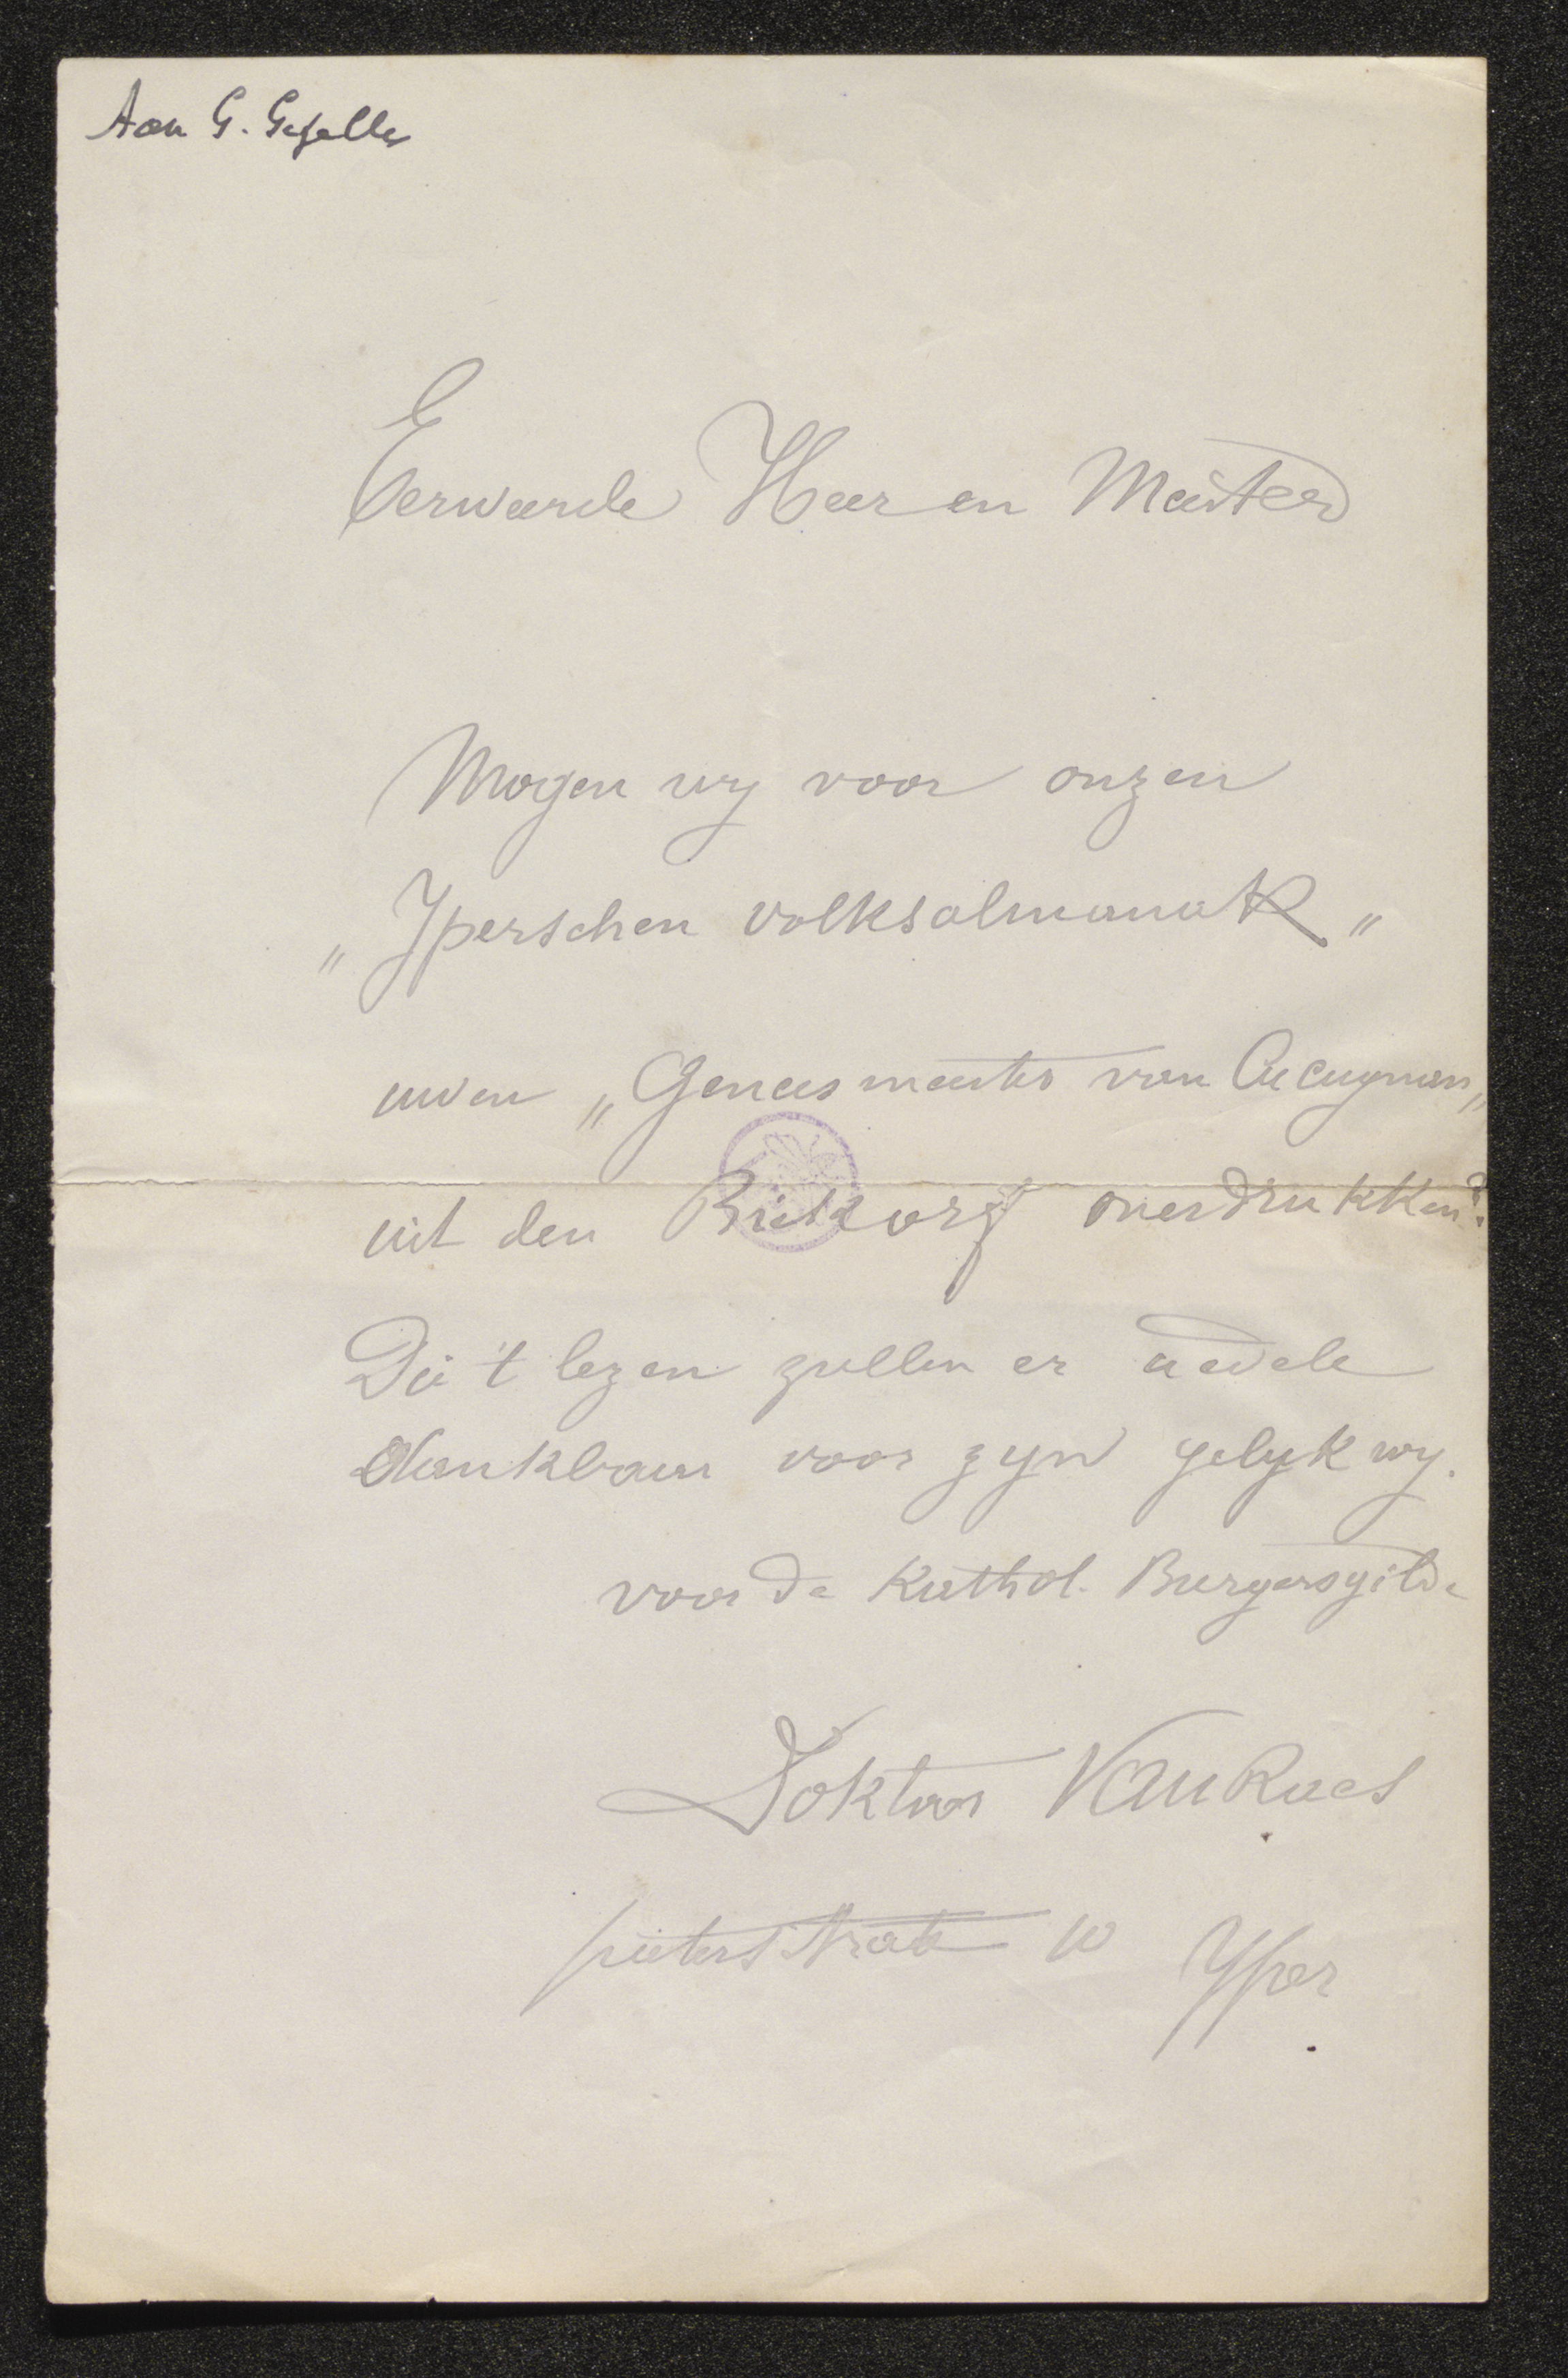 Aan G. Gezelle
Eerweerde Heer en Meester
Mogen wy voor onzen
„Yperschen volksalmanak"
uwen „Geneesmeester van Cucugnan"
uit den Biekorf overdrukken?
Die 't lezen zullen er u edele
dankbaar voor zyn gelyk wy.
voor de Kathol. Burgersgilde
Doktoor Van Raes
pieterstrate 10 Yper